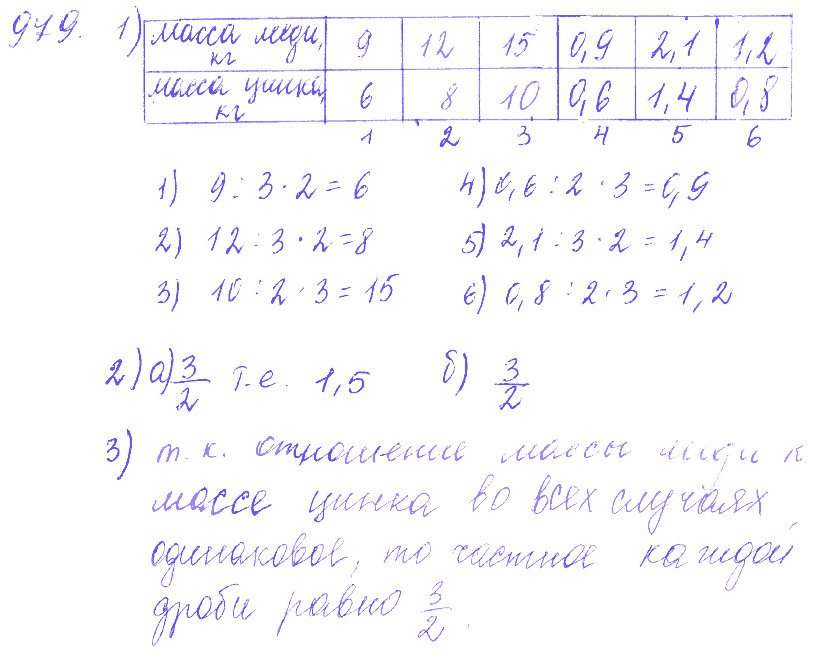 979. 1) масса меди, кг 9 12 15 0,9 2,1 1,2
масса цинка, кг 6 8 10 0,6 1,4 0,8
1 2 3 4 5 6
1) 9 : 3 · 2 = 6 4) 0,6 : 2 · 3 = 0,9
2) 12 : 3 · 2 = 8 5) 2,1 : 3 · 2 = 1,4
3) 10 : 2 · 3 = 15 6) 0,8 : 2 · 3 = 1,2
2) а) 3/2 т.е. 1,5 б) 3/2
3) т. к. отношение массы меди к
массе цинка во всех случаях
одинаковое, то частное каждой
дроби равно 3/2.